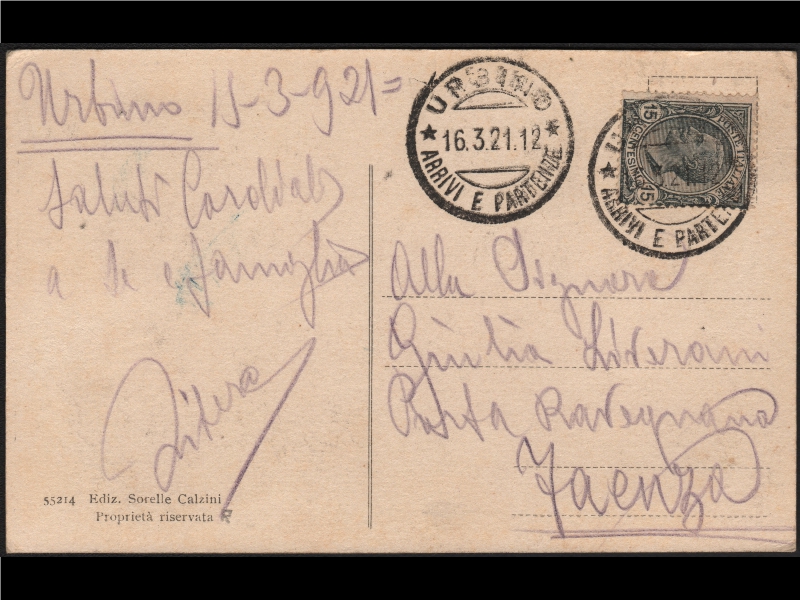 Urbino 15-3-921=
Saluti Cordiali
a te e famiglia
55214 Ediz. Sorelle Calzini
Proprietà riservata
URBINO
16.3.21.12
ARRIVI E PARTENZE
15 CENTESIMI 15
POSTE ITALIANE
ARRIVI E PARTEN
Alla Signora
Giulia Liverani
Porta Ravegnana
Faenza